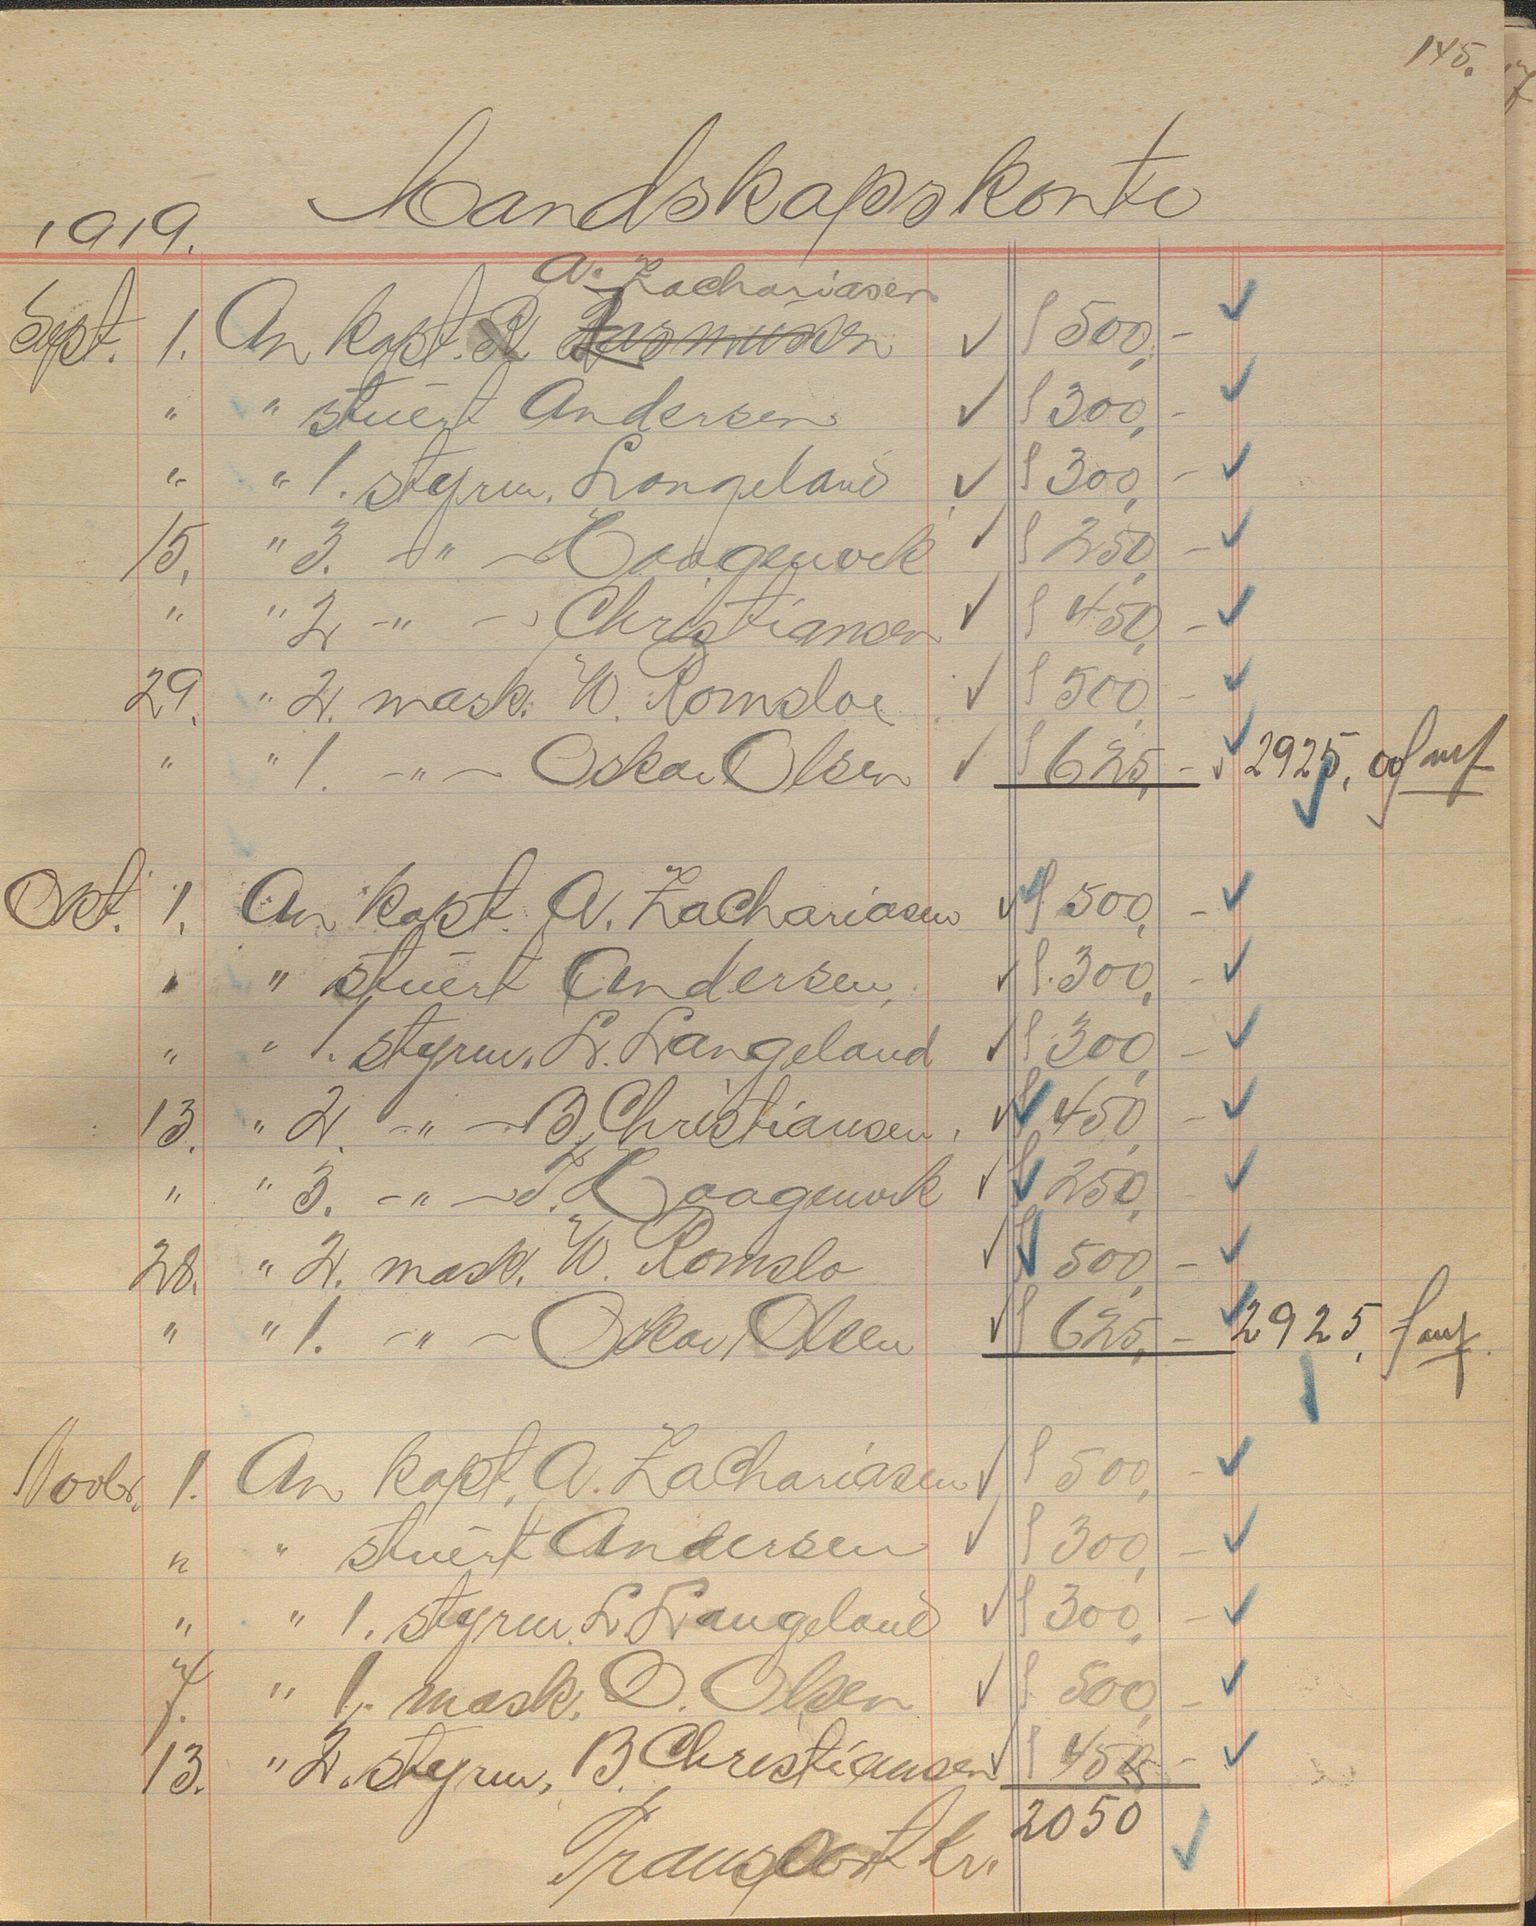 145.
Mandskapskonto
1919.
A. Zachariasen
Sept. 1. An kapt. R. Rasmussen ✓ § 500,- ✓
" " stuert Andersen ✓ § 300,- ✓
" " 1. styrm. Langeland ✓ § 300,- ✓
15, " 3. -"- Haagenvik ✓ § 250,- ✓
" " 2. -"- Christiansen ✓ § 450,- ✓
29. " 2. mask. W. Romsloe ✓ § 500,- ✓
" " 1. -"- Oskar Olsen ✓ § 625,- ✓ 2925,00
Okt. 1. An kapt. A. Zachariasen ✓ § 500,- ✓
" " stuert Andersen, ✓ § 300,- ✓
" " 1. styrm. L. Langeland ✓ § 300,- ✓
13. " 2. -"- B. Christiansen, ✓ § 450,- ✓
" " 3. -"- T. Haagenvik ✓ § 250,- ✓
28. " 2. mask. W. Romslo ✓ § 500,- ✓
" " 1. -"- Oskar Olsen ✓ § 625,- ✓ 2925,
Novbr. 1. An kapt. A. Zachariasen ✓ § 500,- ✓
" " stuert Andersen ✓ § 300,- ✓
" " 1. styrm. L. Langeland ✓ § 300,- ✓
7. " 1. mask. O. Olsen ✓ § 500,- ✓
13. " 2. styrm, B. Christiansen ✓ § 450,- ✓
Transport kr. 2050 ✓